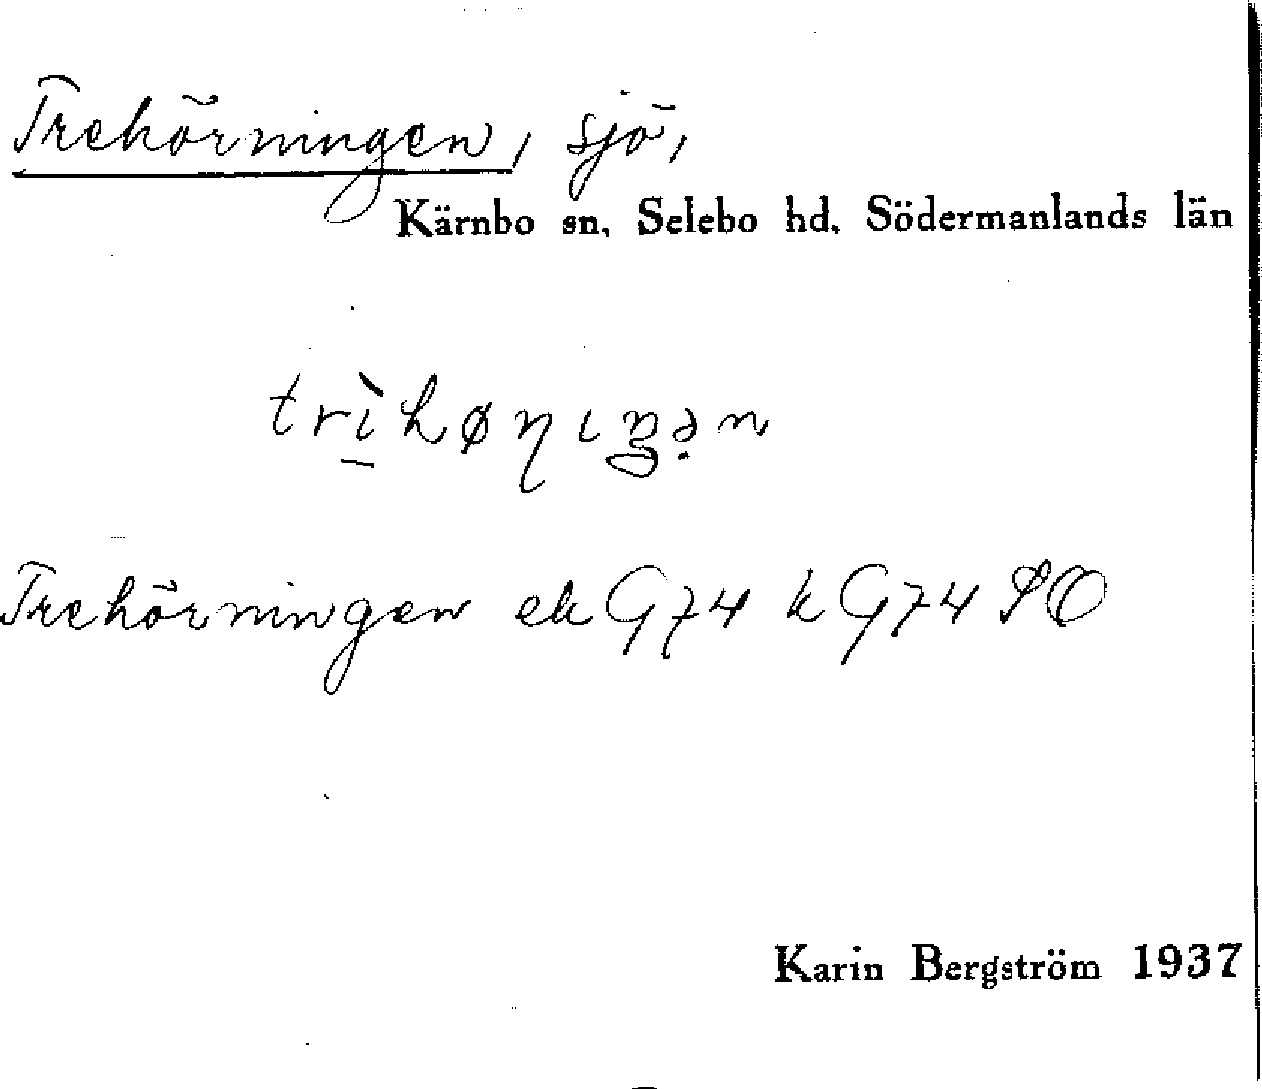 Trehörningen, sjö,
Kärnbo sn, Selebo hd. Södermanlands län
trı̱̀høɳıŋən
Trehörningen ek G74 k G74 SO
Karin Bergström 1937